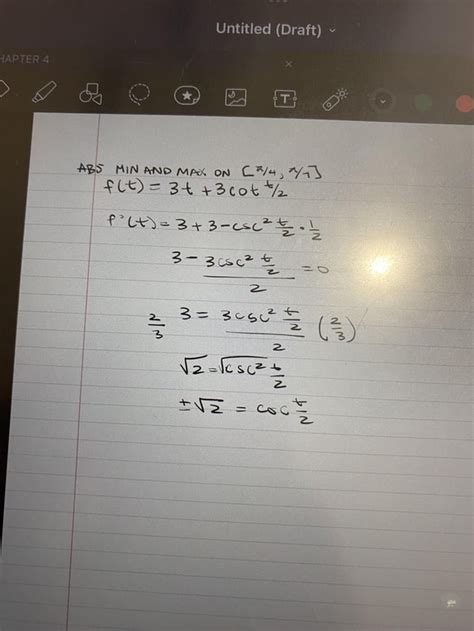 Untitled (Draft)
HAPTER 4
ABS MIN AND MAX ON [π/4, π/
f(t) = 3t + 3cot t/2
f'(t) = 3 + 3 - csc² t/2 · 1/2
3 - 3csc² t/2 / 2 = 0
2/3 3 = 3csc² t/2 / 2 (2/3)
√2 = √csc² t/2
±√2 = csc t/2